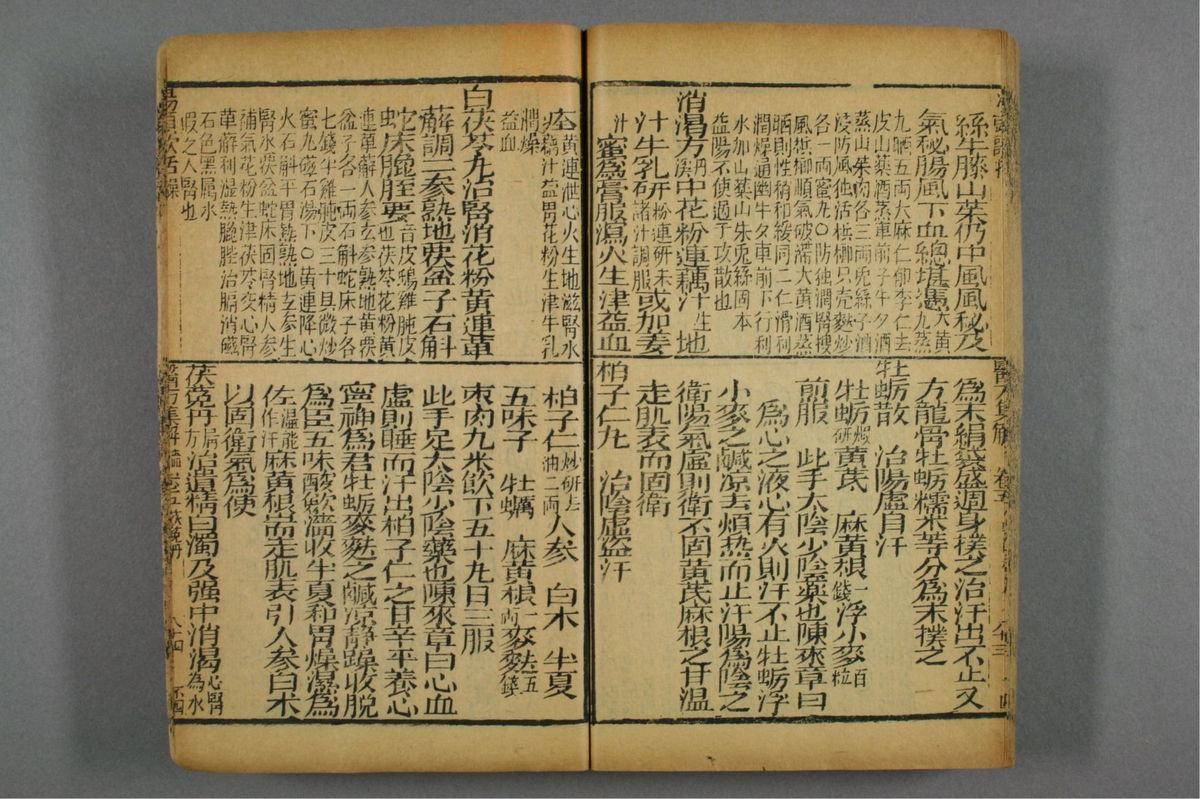 絲牛膝山茱仍中風風秘及
氣秘腸風下血總堪憑大黃九蒸
九晒五兩大麻仁郁李仁去
皮山藥酒蒸車前子牛夕酒
蒸山朱肉各三兩兎絲子酒
浸防風独活梹榔只壳麩炒
各一兩蜜丸〇防独潤腎搜
風梹榔順氣破滯大黃酒蒸
晒則性稍和緩同二仁滑利
潤燥通幽牛夕車前下行利
水加山薬山朱兎絲固本
益陽不使過于攻散也
消渴方丹溪中花粉連藕汁生地
汁牛乳研粉連研末諸汁調服或加姜
汁蜜為膏服瀉火生津益血
為末絹袋盛週身撲之治汗出不止又
方龍骨牡蛎糯米等分為末撲之
牡蛎散　治陽虛自汗
牡蛎煆研黃芪　麻黃根一錢浮小麥百粒
煎服　此手太陰少陰藥也陳來章曰
為心之液心有火則汗不止牡蛎浮
小麥之鹹凉去煩热而止汗陽為陰之
衛陽氣虛則衛不固黃芪麻根之甘温
走肌表而固衛
柏子仁丸　治陰虛盗汗
痊黃連泄心火生地滋腎水
藕汁益胃花粉生津牛乳
潤燥
益血
白茯苓丸治腎消花粉黃連萆
薢調二參熟地覆盆子石斛
蛇床膍胵要音皮鴟雞肫皮
也茯苓花粉黃
連萆薢人參玄參熟地黃覆
盆子各一兩石斛蛇床子各
七錢半雞肫皮三十具微炒
蜜丸磁石湯下〇黃連降心
火石斛平胃熱熟地玄參生
腎水覆盆蛇床固腎精人參
補氣花粉生津茯苓交心腎
萆薢利湿熱膍胵治膈消磁
石色黑属水
假之入腎也
柏子仁炒研去油二兩人參　白术　半夏
五味子　牡蠣　麻黃根一兩麥麩五錢
棗肉丸米飲下五十丸日三服
此手足太陰少陰藥也陳來章曰心血
虛則睡而汗出柏子仁之甘辛平養心
寧神為君牡蛎麥麩之鹹凉静躁收脱
為臣五味酸歛濇收半夏和胃燥濕為
佐温能作汗麻黃根耑走肌表引人參白术
以固衛氣為使
茯菟丹局方治遺精白濁及强中消渴心腎為水
醫方集解